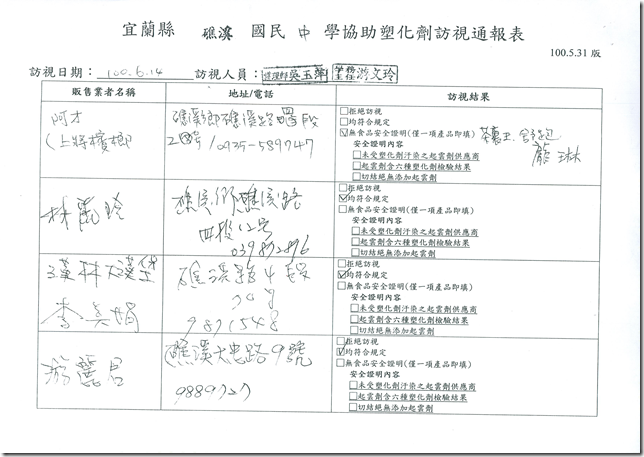 宜蘭縣 礁溪 國民 中 學協助塑化劑訪視通報表
100.5.31 版
訪視日期：100.6.14 訪視人員：護理師 吳玉萍 學務主任 游文玲
販售業者名稱 地址/電話 訪視結果
阿才
(上將檳榔
礁溪鄉礁溪路四段
0935-589747
□拒絕訪視
□均符合規定
☑無食品安全證明(僅一項產品即填)
安全證明內容
□未受塑化劑汙染之起雲劑供應商
□起雲劑含六種塑化劑檢驗結果
□切結絕無添加起雲劑
礁溪鄉礁溪路
四段12號
039872896
□拒絕訪視
☑均符合規定
□無食品安全證明(僅一項產品即填)
安全證明內容
□未受塑化劑汙染之起雲劑供應商
□起雲劑含六種塑化劑檢驗結果
□切結絕無添加起雲劑
礁溪路4段
9871548
□拒絕訪視
☑均符合規定
□無食品安全證明(僅一項產品即填)
安全證明內容
□未受塑化劑汙染之起雲劑供應商
□起雲劑含六種塑化劑檢驗結果
□切結絕無添加起雲劑
游麗君
礁溪大忠路9號
9889727
□拒絕訪視
☑均符合規定
□無食品安全證明(僅一項產品即填)
安全證明內容
□未受塑化劑汙染之起雲劑供應商
□起雲劑含六種塑化劑檢驗結果
□切結絕無添加起雲劑